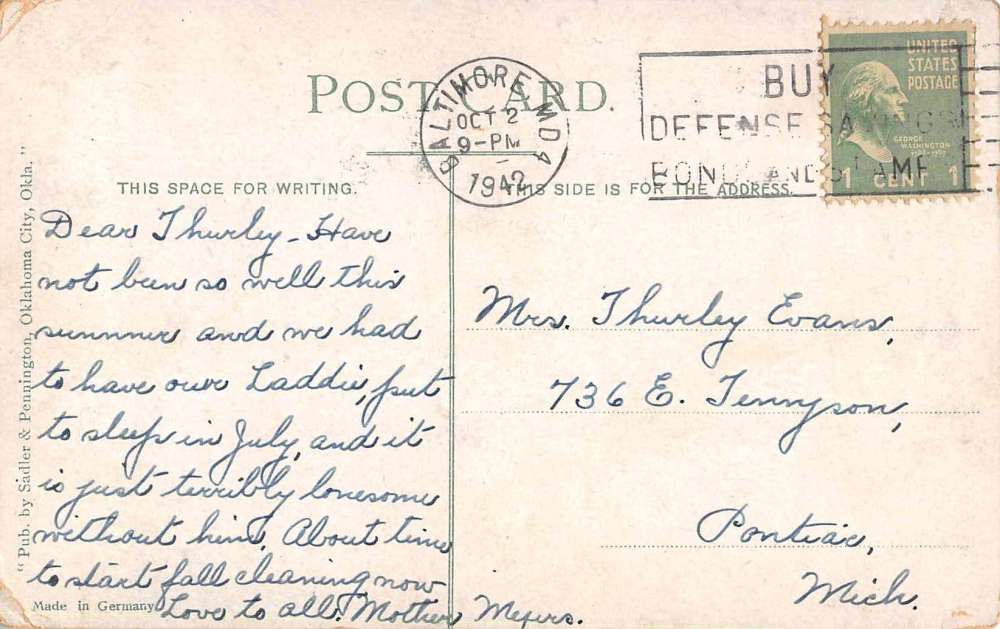 POST CARD.
BALTIMORE, MD. 4
OCT 2
9-PM
1942
BUY
DEFENSE SAVINGS
BONDS AND STAMPS
UNITED
STATES
POSTAGE
GEORGE
WASHINGTON
1 CENT 1
THIS SPACE FOR WRITING.
THIS SIDE IS FOR THE ADDRESS.
Dear Thurley - Have
not been so well this
summer and we had
to have our Laddie, put
to sleep in July, and it
is just terribly lonesome
without him. About time
to start fall cleaning now
Love to all. Mother Meyers.
Mrs. Thurley Evans,
736 E. Tennyson,
Pontiac,
Mich.
"Pub. by Sadler & Pennington, Oklahoma City, Okla."
Made in Germany